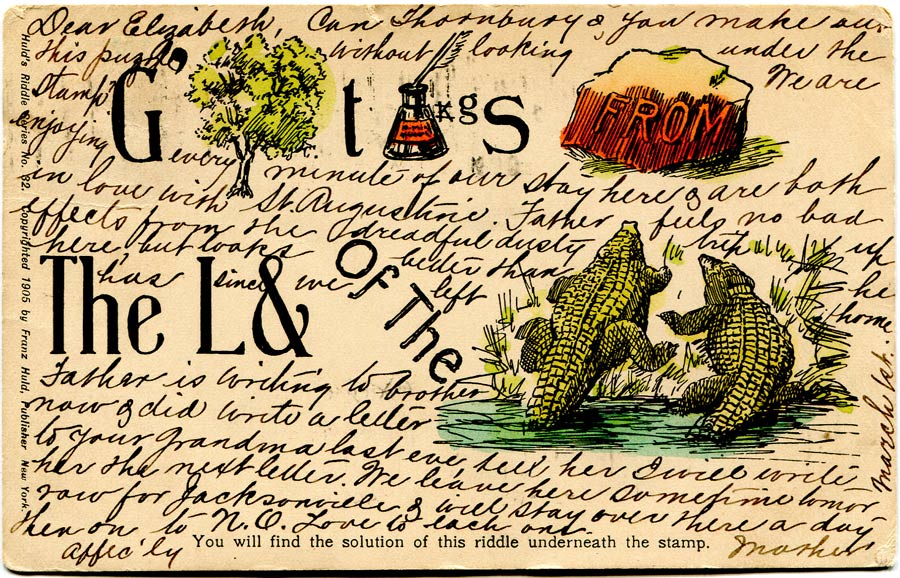 Dear Elizabeth, Can Thornbury & you make out
this puzzle without looking under the
Stamp We are
G' t kgs FROM
enjoying every minute of our stay here & are both
in love with St. Augustine. Father feels no bad
effects from the dreadful dusty trip up
here but looks better than he
has since we left home
The L& Of The
Father is writing to brother
now & did write a letter
to your Grandma last eve, tell her I will write
her the next letter. We leave here sometime tomor
row for Jacksonville & will stay over there a day
then on to N.O. Love to each one
Affec'ly Mother
March 1st.
You will find the solution of this riddle underneath the stamp.
Huld's Riddle Series No. 92. Copyrighted 1905 by Franz Huld, Publisher New York.